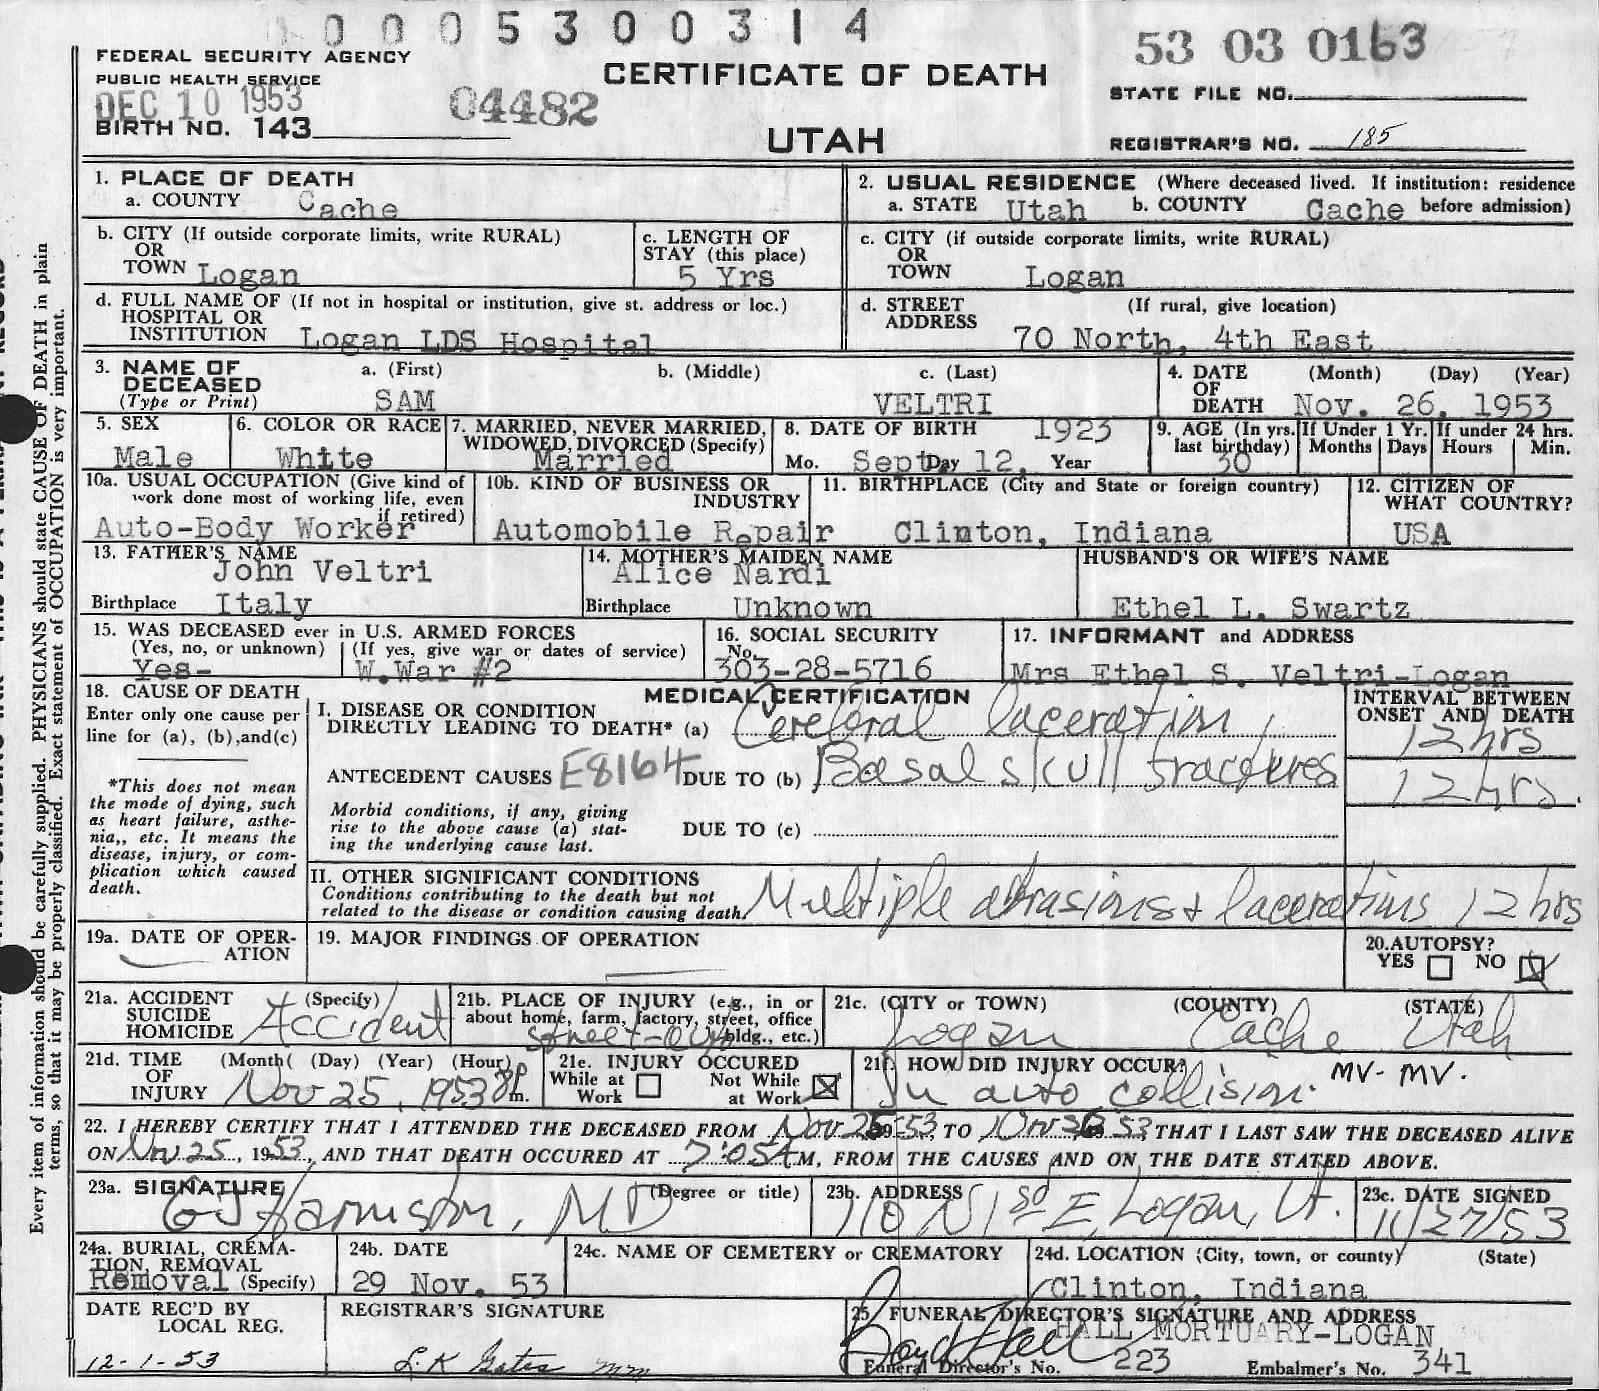 0 0 0 5 3 0 0 3 1 4
53 03 0163
FEDERAL SECURITY AGENCY
PUBLIC HEALTH SERVICE
DEC 10 1953
04482
CERTIFICATE OF DEATH
STATE FILE NO.
BIRTH NO. 143
UTAH
REGISTRAR'S NO. 185
1. PLACE OF DEATH
a. COUNTY Cache
2. USUAL RESIDENCE (Where deceased lived. If institution: residence before admission)
a. STATE Utah b. COUNTY Cache
b. CITY (If outside corporate limits, write RURAL)
OR
TOWN Logan
c. LENGTH OF
STAY (this place)
5 Yrs
c. CITY (if outside corporate limits, write RURAL)
OR
TOWN Logan
d. FULL NAME OF (If not in hospital or institution, give st. address or loc.)
HOSPITAL OR
INSTITUTION Logan LDS Hospital
d. STREET (If rural, give location)
ADDRESS 70 North, 4th East
3. NAME OF
DECEASED
(Type or Print)
a. (First) b. (Middle) c. (Last)
SAM VELTRI
4. DATE (Month) (Day) (Year)
OF
DEATH Nov. 26, 1953
5. SEX
Male
6. COLOR OR RACE
White
7. MARRIED, NEVER MARRIED,
WIDOWED, DIVORCED (Specify)
Married
8. DATE OF BIRTH 1923
Mo. Sept Day 12, Year
9. AGE (In yrs. last birthday)
30
If Under 1 Yr.
Months Days
If under 24 hrs.
Hours Min.
10a. USUAL OCCUPATION (Give kind of
work done most of working life, even
if retired)
Auto-Body Worker
10b. KIND OF BUSINESS OR
INDUSTRY
Automobile Repair
11. BIRTHPLACE (City and State or foreign country)
Clinton, Indiana
12. CITIZEN OF
WHAT COUNTRY?
USA
13. FATHER'S NAME
John Veltri
Birthplace Italy
14. MOTHER'S MAIDEN NAME
Alice Nardi
Birthplace Unknown
HUSBAND'S OR WIFE'S NAME
Ethel L. Swartz
15. WAS DECEASED ever in U.S. ARMED FORCES
(Yes, no, or unknown) (If yes, give war or dates of service)
Yes- W.War #2
16. SOCIAL SECURITY
No.
303-28-5716
17. INFORMANT and ADDRESS
Mrs Ethel S. Veltri-Logan
18. CAUSE OF DEATH
Enter only one cause per
line for (a), (b),and(c)
*This does not mean
the mode of dying, such
as heart failure, asthe-
nia,, etc. It means the
disease, injury, or com-
plication which caused
death.
MEDICAL CERTIFICATION
INTERVAL BETWEEN
ONSET AND DEATH
I. DISEASE OR CONDITION
DIRECTLY LEADING TO DEATH* (a) Cerebral laceration, 12 hrs
ANTECEDENT CAUSES E8164 DUE TO (b) Basal skull fractures 12 hrs.
Morbid conditions, if any, giving
rise to the above cause (a) stat-
ing the underlying cause last.
DUE TO (c)
II. OTHER SIGNIFICANT CONDITIONS
Conditions contributing to the death but not
related to the disease or condition causing death.
Multiple abrasions + lacerations 12 hrs
19a. DATE OF OPER-
ATION
19. MAJOR FINDINGS OF OPERATION
20.AUTOPSY?
YES NO
21a. ACCIDENT (Specify)
SUICIDE
HOMICIDE
Accident
21b. PLACE OF INJURY (e.g., in or
about home, farm, factory, street, office
bldg., etc.)
21c. (CITY or TOWN) (COUNTY) (STATE)
Logan Cache Utah
21d. TIME (Month( (Day) (Year) (Hour)
OF
INJURY Nov 25, 1953 8P m.
21e. INJURY OCCURED
While at
Work
Not While
at Work
21f. HOW DID INJURY OCCUR? MV-MV.
In auto collision.
22. I HEREBY CERTIFY THAT I ATTENDED THE DECEASED FROM Nov 25 53, TO Nov 26 53, THAT I LAST SAW THE DECEASED ALIVE
ON Nov 25, 1953, AND THAT DEATH OCCURED AT 7:05 A M, FROM THE CAUSES AND ON THE DATE STATED ABOVE.
23a. SIGNATURE (Degree or title)
MD
23b. ADDRESS
110 N 1st E, Logan, Ut.
23c. DATE SIGNED
11/27/53
24a. BURIAL, CREMA-
TION, REMOVAL
Removal (Specify)
24b. DATE
29 Nov. 53
24c. NAME OF CEMETERY or CREMATORY
24d. LOCATION (City, town, or county) (State)
Clinton, Indiana
DATE REC'D BY
LOCAL REG.
12-1-53
REGISTRAR'S SIGNATURE
L.K Gates mm
25 FUNERAL DIRECTOR'S SIGNATURE AND ADDRESS
HALL MORTUARY-LOGAN
Funeral Director's No. 223 Embalmer's No. 341
Every item of information should be carefully supplied. PHYSICIANS should state CAUSE OF DEATH in plain
terms, so that it may be properly classified. Exact statement of OCCUPATION is very important.